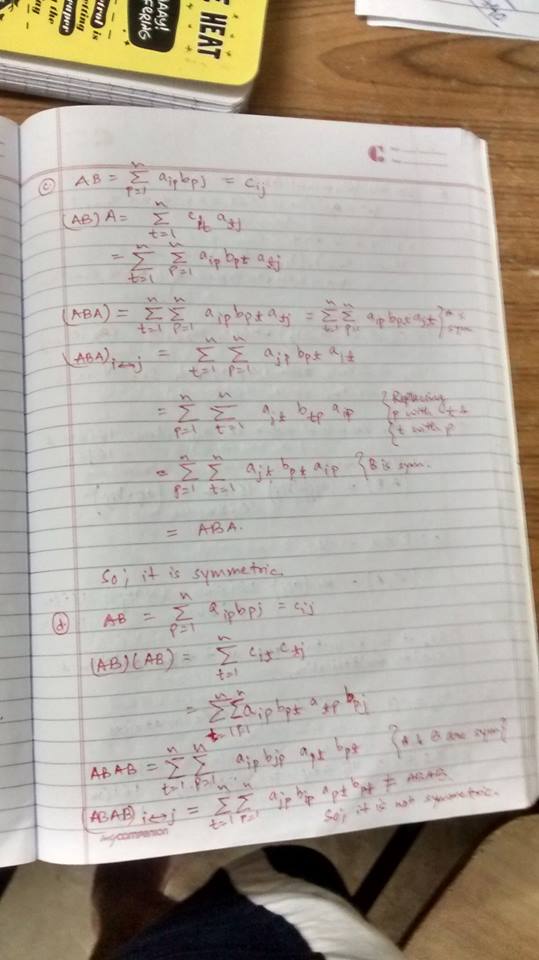 E HEAT
AAAY!
FFERING
ntrol is
etting
roper
the
(c) AB = Σ_{p=1}^{n} a_{ip} b_{pj} = c_{ij}
(AB)A = Σ_{t=1}^{n} c_{it} a_{tj}
= Σ_{t=1}^{n} Σ_{p=1}^{n} a_{ip} b_{pt} a_{tj}
(ABA) = Σ_{t=1}^{n} Σ_{p=1}^{n} a_{ip} b_{pt} a_{tj} = Σ_{t=1}^{n} Σ_{p=1}^{n} a_{ip} b_{pt} a_{jt} } A is sym
(ABA)_{i↔j} = Σ_{t=1}^{n} Σ_{p=1}^{n} a_{jp} b_{pt} a_{it}
= Σ_{p=1}^{n} Σ_{t=1}^{n} a_{jt} b_{tp} a_{ip} { Replacing p with t & t with p
= Σ_{p=1}^{n} Σ_{t=1}^{n} a_{jt} b_{pt} a_{ip} { B is sym.
= ABA.
So, it is symmetric.
(d) AB = Σ_{p=1}^{n} a_{ip} b_{pj} = c_{ij}
(AB)(AB) = Σ_{t=1}^{n} c_{it} c_{tj}
= Σ_{t=1}^{n} Σ_{p=1}^{n} a_{ip} b_{pt} a_{tp} b_{pj}
ABAB = Σ_{t=1}^{n} Σ_{p=1}^{n} a_{ip} b_{jp} a_{pt} b_{pt} { A & B are sym }
(ABAB)_{i↔j} = Σ_{t=1}^{n} Σ_{p=1}^{n} a_{jp} b_{ip} a_{pt} b_{pt} ≠ ABAB
So, it is not symmetric.
companion